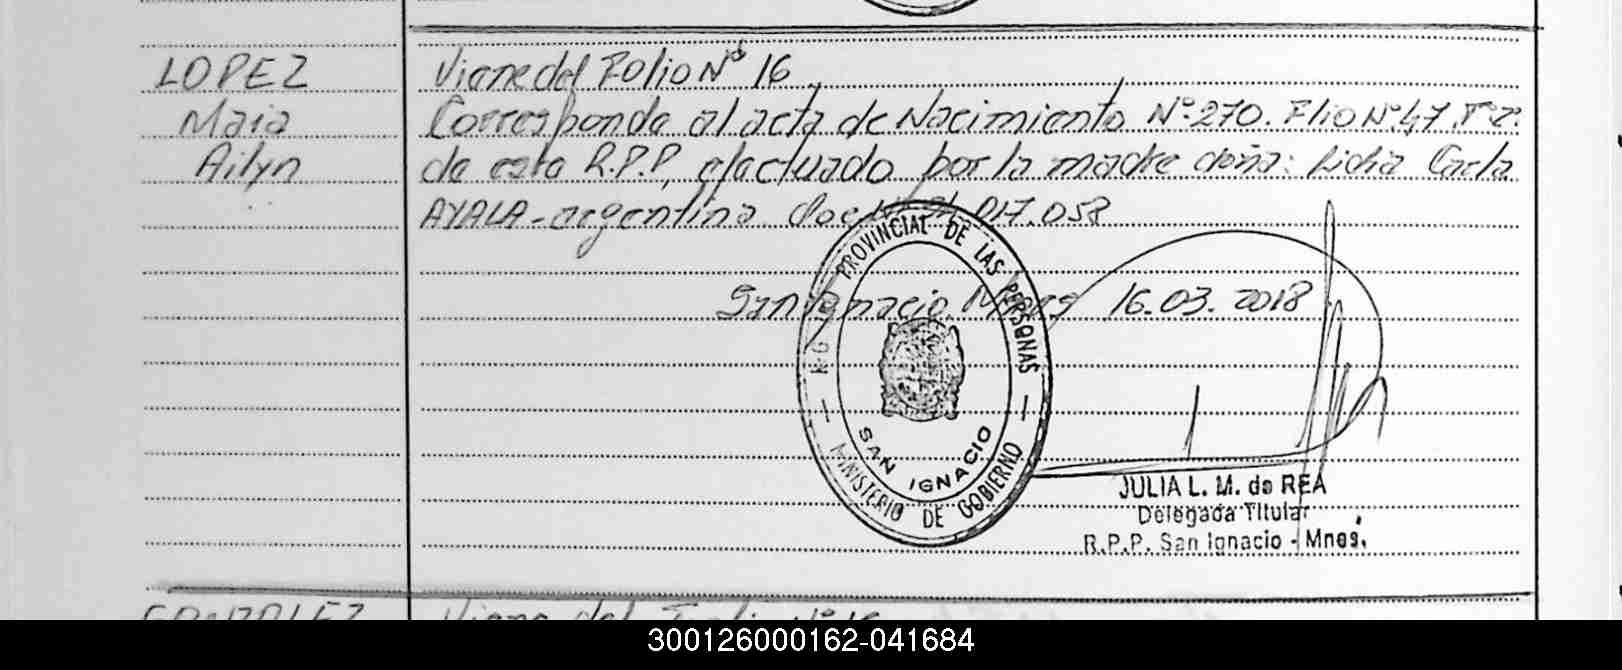 LOPEZ
Maia
Ailyn
Viene del Folio Nº 16
Corresponde al acta de Nacimiento Nº 270. Flio Nº 47. Tº 2º
de esta R.P.P, efactuado por la madre doña: Lidia Carla
AYALA - argentina Doc 017.058
San Ignacio Mnes 16.03.2018
PROVINCIAL DE LAS PERSONAS
SAN IGNACIO
MINISTERIO DE GOBIERNO
JULIA L. M. de REA
Delegada Titular
R.P.P. San Ignacio - Mnes.
GONZALEZ
Viene del Folio Nº 16
300126000162-041684